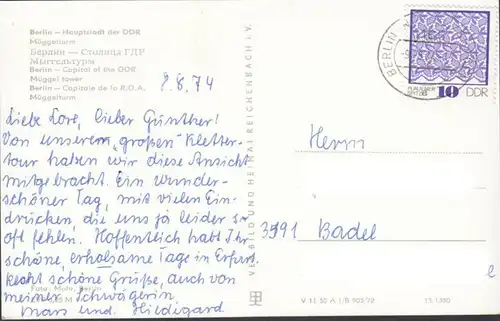 Berlin – Hauptstadt der DDR
Müggelturm
Берлин — Столица ГДР
Мыггельтурм
Berlin – Capital of the GDR
Müggel tower
Berlin – Capitale de la R.D.A.
Müggelturm
9.8.74
Liebe Lore, lieber Günther!
Von unserem „großen" Kletter-
tour haben wir diese Ansicht
mitgebracht. Ein wunder-
schöner Tag, mit vielen Ein-
drücken, die uns ja leider so
oft fehlen. Hoffentlich habt Ihr
schöne, erholsame Tage in Erfurt.
Recht schöne Grüße, auch von
meiner Schwägerin,
und Hildigard.
Foto: Mohr, Berlin
VEB BILD UND HEIMAT REICHENBACH I. V.
BERLIN
10 DDR
Herrn
3591 Badel
e
V 11 50 A 1/B 902/72